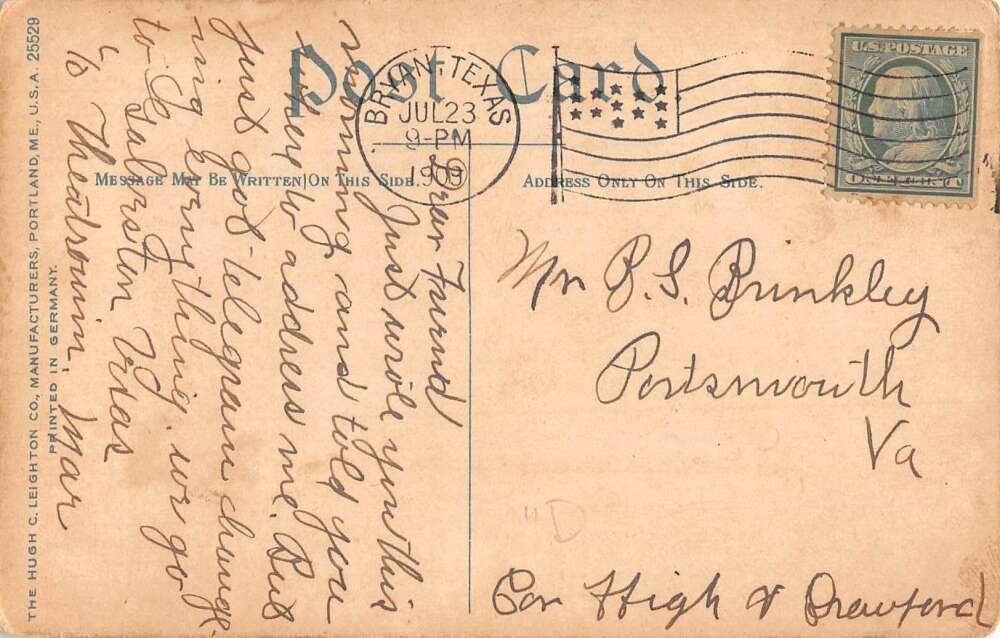 THE HUGH C. LEIGHTON CO., MANUFACTURERS, PORTLAND, ME., U.S.A. 25529
PRINTED IN GERMANY.
Post Card.
BRYAN, TEXAS
JUL 23
9-PM
1909
U.S. POSTAGE
MESSAGE MAY BE WRITTEN ON THIS SIDE.
ADDRESS ONLY ON THIS SIDE.
Dear Friend
Just wrote you this
morning and told you
where to address me. But
Just got telegram chang-
ing everything. we go
to Galveston Texas
"to Theatrouim. Mar
Mr P. S. Brinkley
Portsmouth
Va
"D
Cor High & Crawford